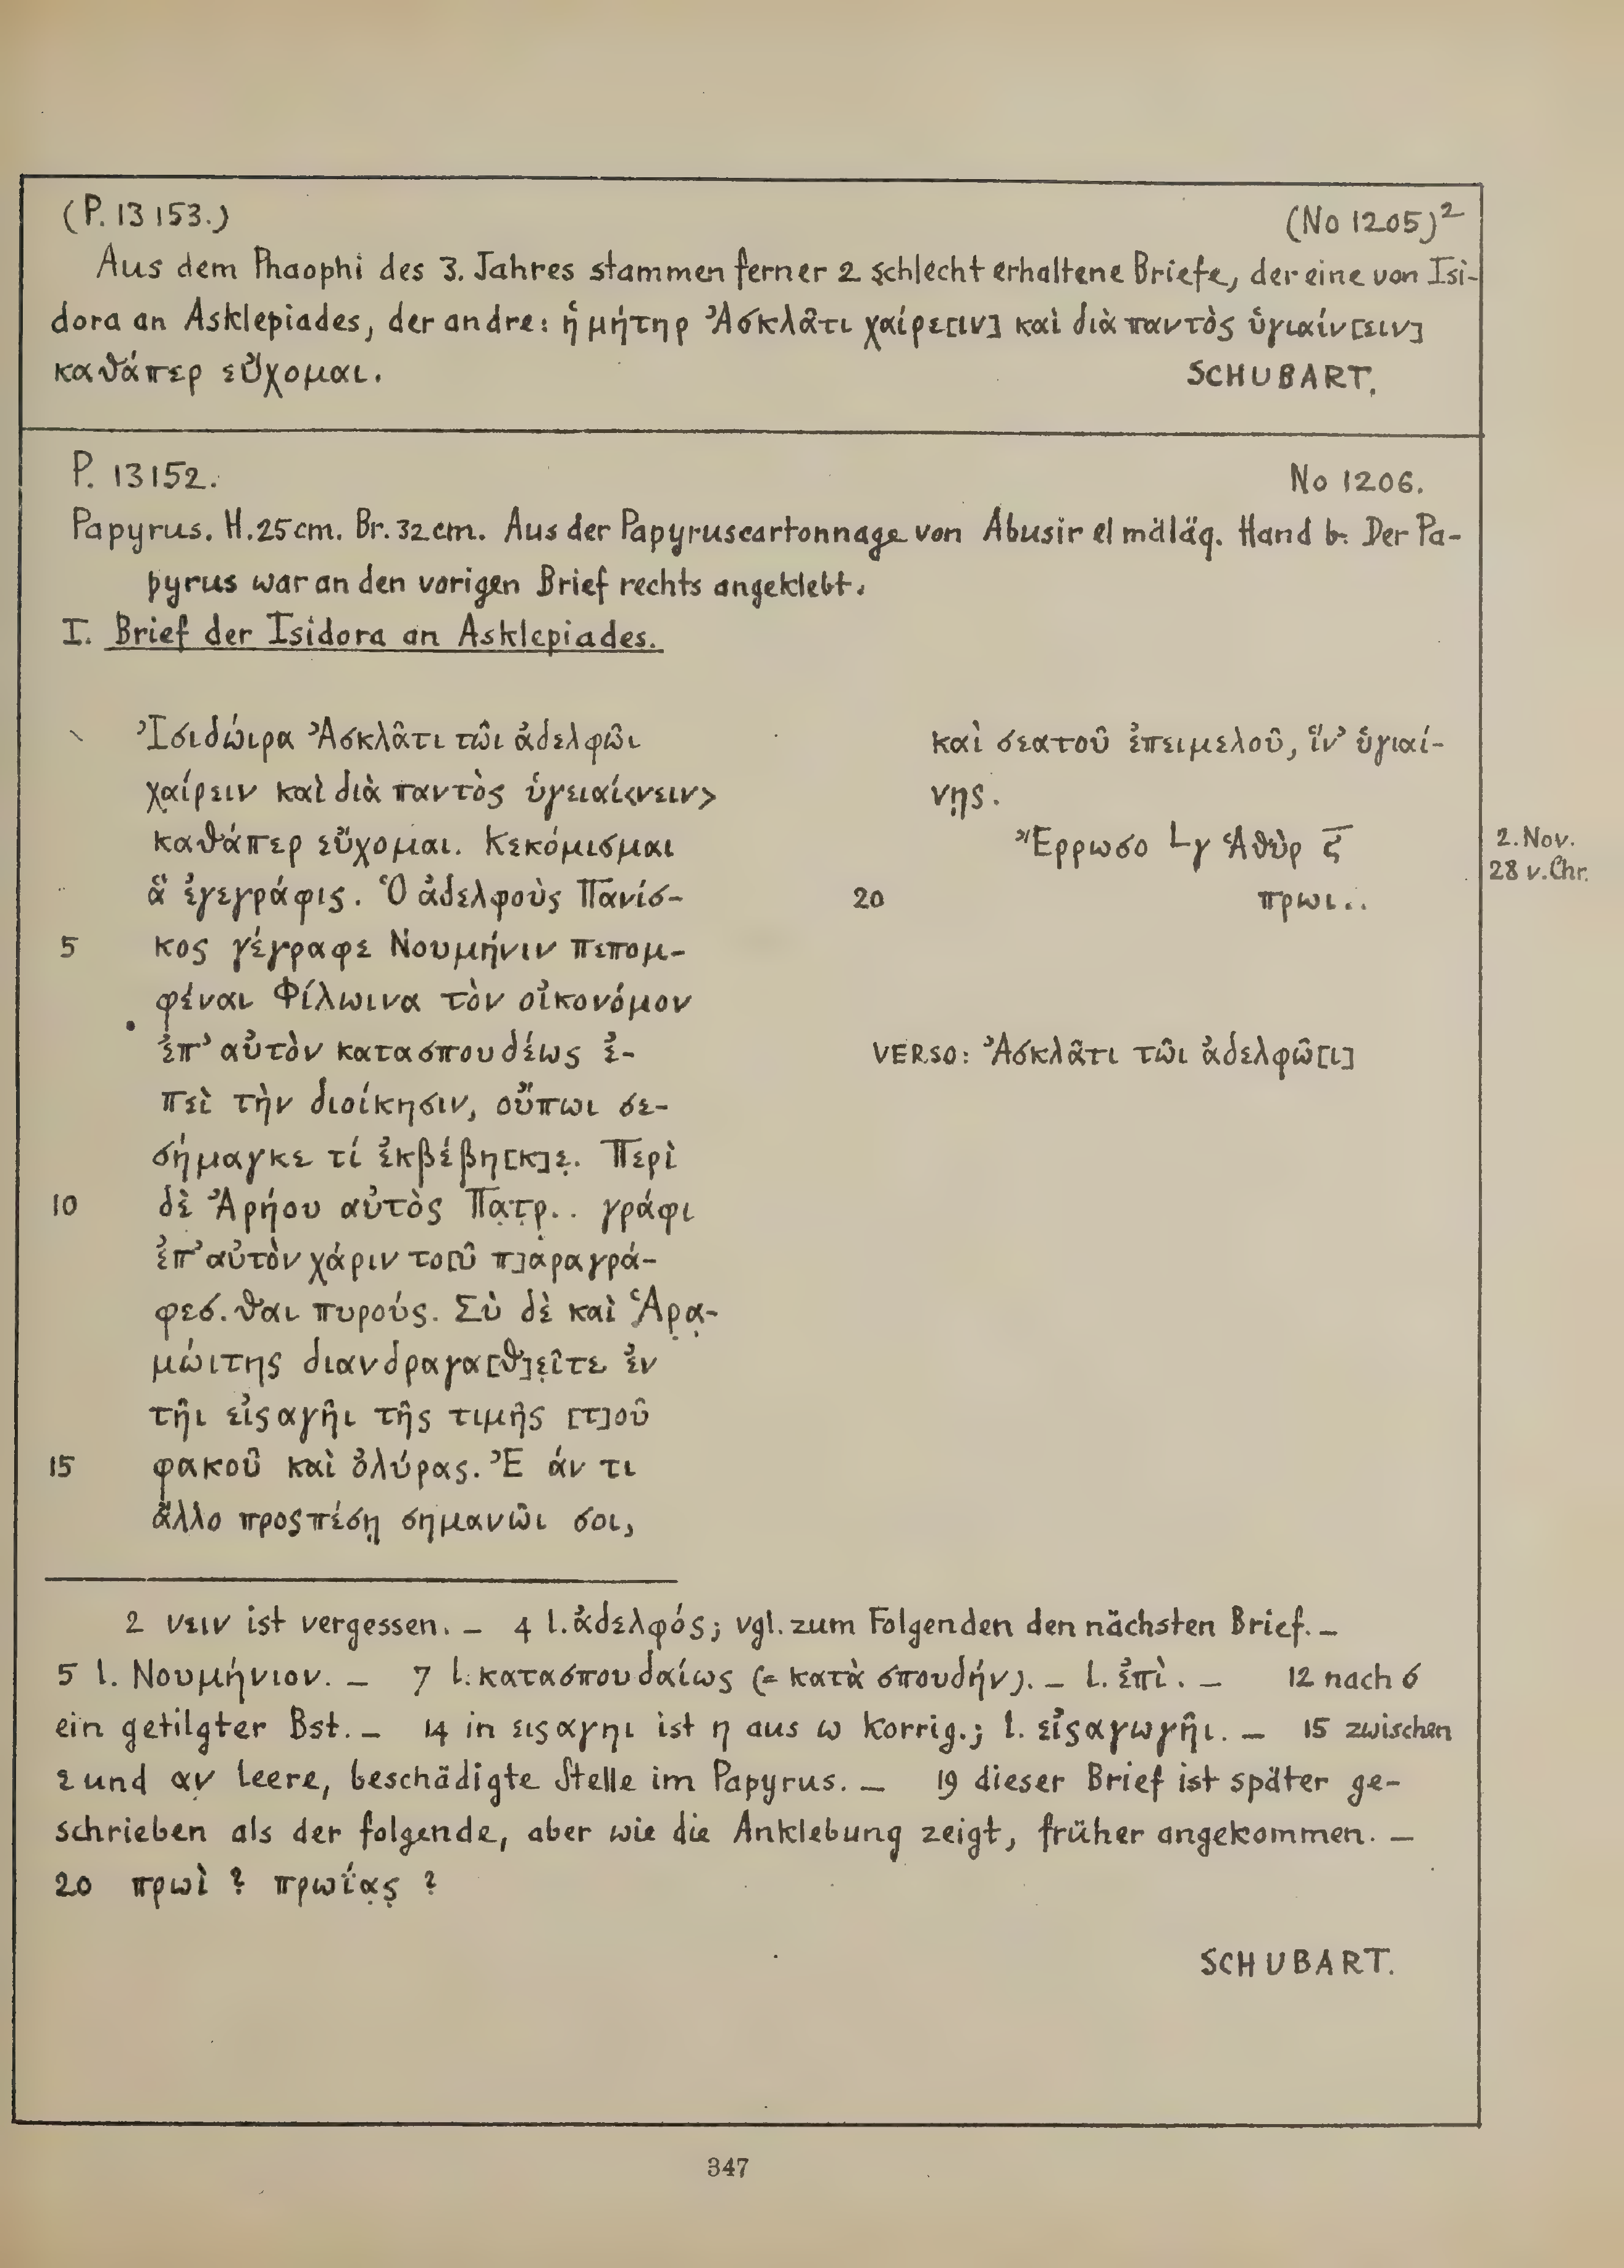 (P. 13153.) (No 1205)²
Aus dem Phaophi des 3. Jahres stammen ferner 2 schlecht erhaltene Briefe, der eine von Isi-
dora an Asklepiades, der andre: ἡ μήτηρ Ἀσκλᾶτι χαίρε[ιν] καὶ διὰ παντὸς ὑγιαίν[ειν]
καθάπερ εὔχομαι. SCHUBART.
P. 13152. No 1206.
Papyrus. H. 25 cm. Br. 32 cm. Aus der Papyruscartonnage von Abusir el mäläq. Hand b. Der Pa-
pyrus war an den vorigen Brief rechts angeklebt.
I. Brief der Isidora an Asklepiades.
Ἰσιδώιρα Ἀσκλᾶτι τῶι ἀδελφῶι
χαίρειν καὶ διὰ παντὸς ὑγειαί<νειν>
καθάπερ εὔχομαι. Κεκόμισμαι
ἃ ἐγεγράφις. Ὁ ἀδελφοὺς Πανίσ-
5 κος γέγραφε Νουμήνιν πεπομ-
φέναι Φίλωινα τὸν οἰκονόμον
ἐπ’ αὐτὸν κατασπουδέως ἐ-
πεὶ τὴν διοίκησιν, οὔπωι σε-
σήμαγκε τί ἐκβέβη[κ]ε̣. Περὶ
10 δὲ Ἀρήου αὐτὸς Πα̣τ̣ρ̣.. γράφι
ἐπ’ αὐτὸν χάριν το[ῦ π]αραγρά-
φεσ.θαι πυρούς. Σὺ δὲ καὶ Ἁρα̣-
μώιτης διανδραγα[θ]ε̣ῖτε ἐν
τῆι εἰςαγῆι τῆς τιμῆς [τ]οῦ
15 φακοῦ καὶ ὀλύρας. Ἐ άν τι
ἄλλο προςπέσῃ σημανῶι σοι,
καὶ σεατοῦ ἐπειμελοῦ, ἵν’ ὑγιαί-
νῃς.
Ἔρρωσο L γ Ἁθὺρ ε̅ 2. Nov.
28 v. Chr.
20 πρωι..
VERSO: Ἀσκλᾶτι τῶι ἀδελφῶ[ι]
2 νειν ist vergessen. – 4 l. ἀδελφός; vgl. zum Folgenden den nächsten Brief. –
5 l. Νουμήνιον. – 7 l. κατασπουδαίως (= κατὰ σπουδήν). – l. ἐπὶ. – 12 nach σ
ein getilgter Bst. – 14 in εισαγηι ist η aus ω korrig.; l. εἰςαγωγῆι. – 15 zwischen
ε und αν leere, beschädigte Stelle im Papyrus. – 19 dieser Brief ist später ge-
schrieben als der folgende, aber wie die Anklebung zeigt, früher angekommen. –
20 πρωὶ ? πρωΐα̣ς̣ ?
SCHUBART.
347